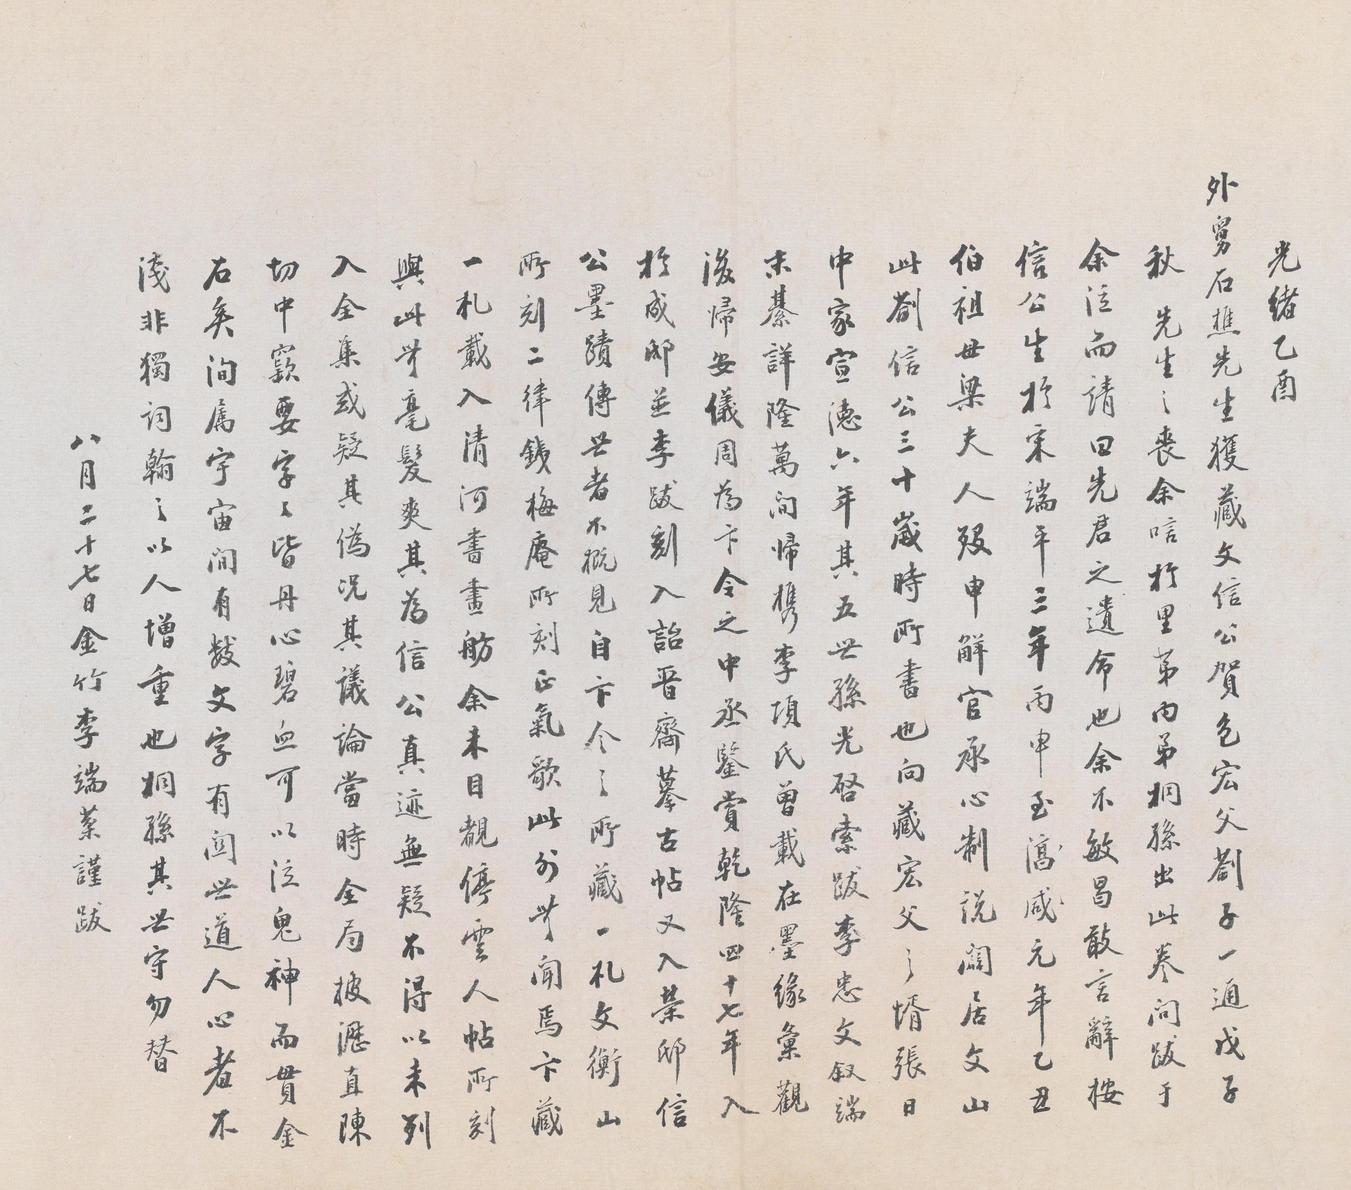 光緒乙酉
外舅石樵先生獲藏文信公賀包宏父劄子一通戊子
秋先生之喪余唁於里第內弟桐孫出此卷問跋于
余泣而請曰先君之遺命也余不敏曷敢言辭桉
信公生於宋端平三年丙申至咸元年乙丑
伯祖母梁夫人歿申解官承心制說闊居文山
此劄信公三十歲時所書也向藏宏父之壻張日
中家宣德六年其五世孫光啓索跋李忠文叙端
末綦詳隆萬間歸檇李項氏曾載在墨緣彙觀
後歸安儀周為卞令之中丞鑒賞乾隆四十七年入
於成邸並李跋刻入詒晉齋摹古帖又入榮邸信
公墨蹟傳世者不概見自卞令之所藏一札文衡山
所刻二律錢梅庵所刻正氣歌此外無聞焉卞藏
一札載入清河書畫舫余未目覩停雲人帖所刻
與此無毫髮爽其為信公真迹無疑不得以未列
入全集或疑其偽況其議論當時全局披瀝直陳
切中窾要字字皆丹心碧血可以泣鬼神而貫金
石矣洵為宇宙間有數文字有關世道人心者不
淺非獨詞翰之以人增重也桐孫其世守勿替
八月二十七日金竹李端棻謹跋